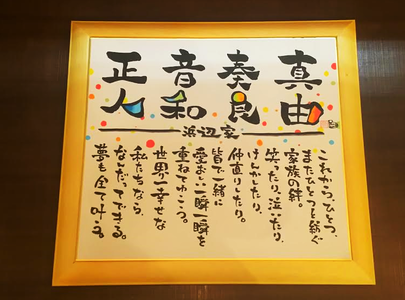 真由
奏良
音和
正人
浜辺家
これから、ひとつ、
またひとつと紡ぐ
家族の絆。
笑ったり、泣いたり、
けんかしたり、
仲直りしたり。
皆で一緒に
愛おしい一瞬一瞬を
重ねてゆこう。
世界一幸せな
私たちなら、
なんだってできる。
夢も全て叶う。